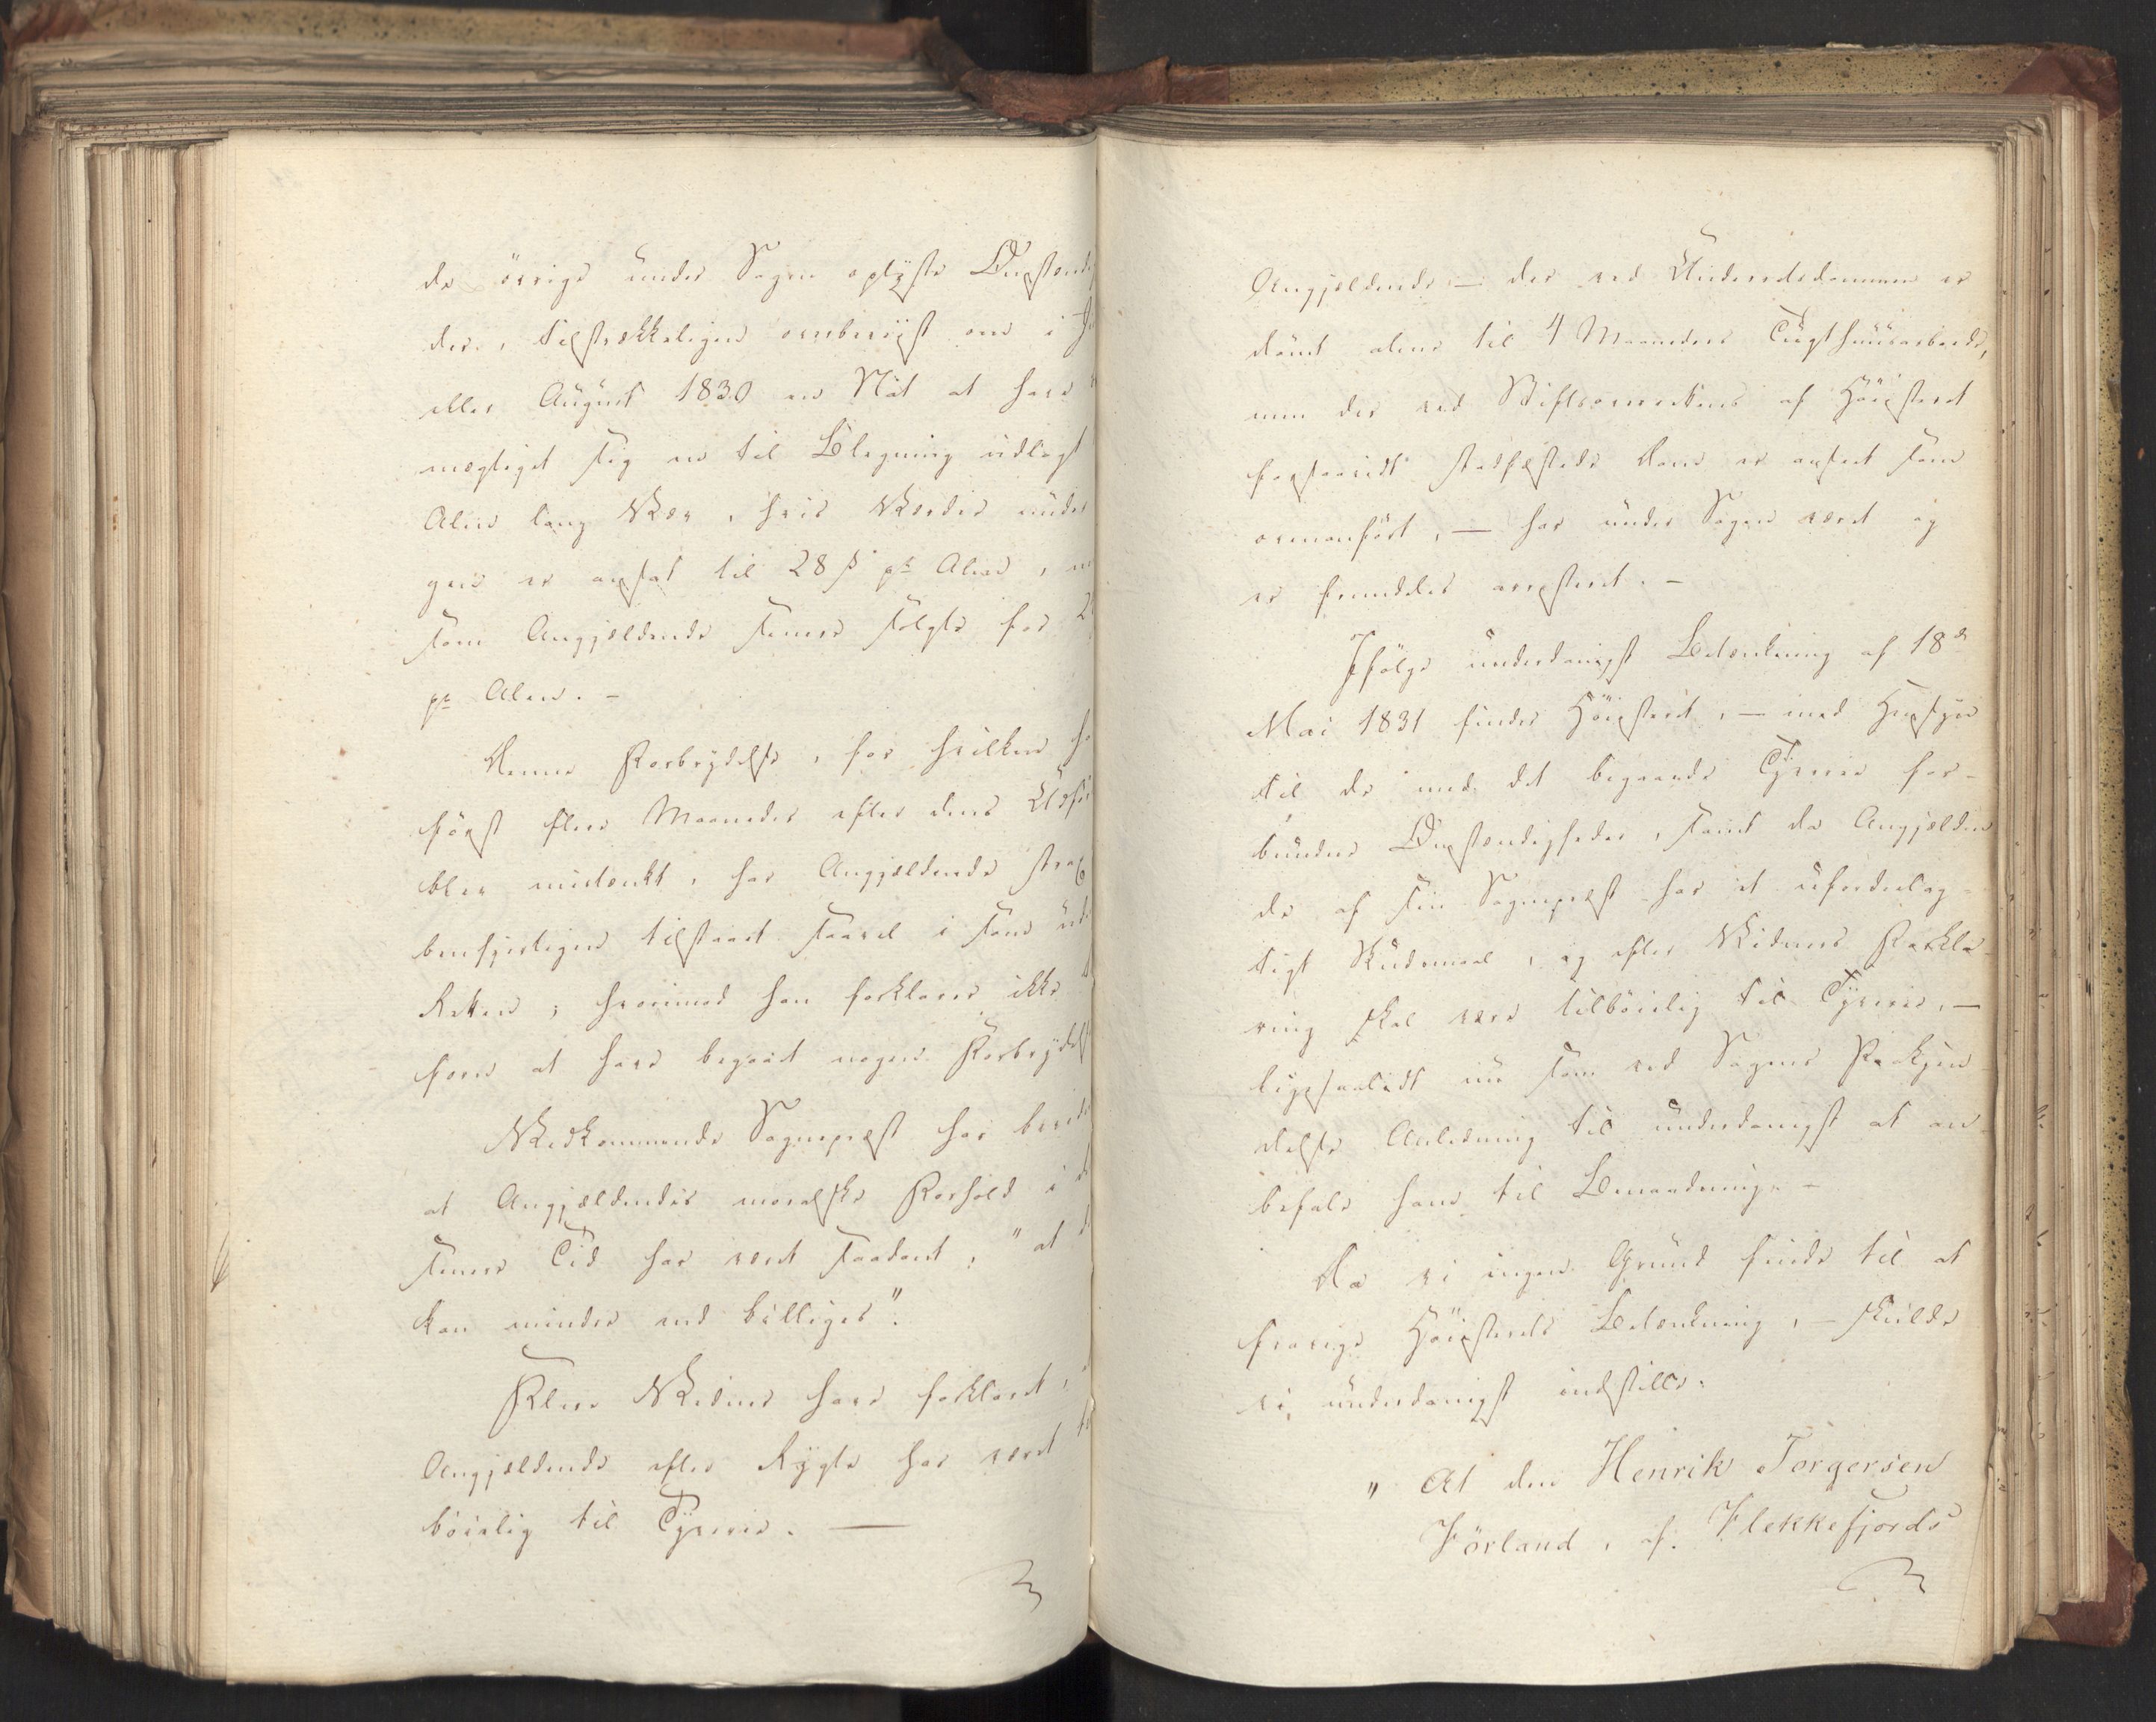 de övrige under Sagen oplyste Omstændig
der, tilstrækkeligen overbeviist om i
eller August 1830 en Nat at have
mægtiget sig en til Blegning udlagt
Alen lang Væv, hvis Værdie under
gen er ansat til 28 ß pr Alen,
som Angjældende senere solgte for
pr Alen. –
Denne Forbrydelse, for hvilken
först flere Maaneder efter dens Udför
blev mistænkt, har Angjældende strax
benhjertigen tilstaaet saavel i som uden
Retten; hvorimod han forklarer ikke
foren at have begaaet nogen Forbrydelse
Vedkommende Sognepræst har bevid
at Angjældendes moralske Forhold i
senere Tid har været saadant, "at
kan mindre end billiges".
Flere Vidner have forklaret,
Angjældende efter Rygte har været
böielig til Tyverie. —
Angjældende – der ved Underretsdommen er
dömt alene til 4 Maaneders Tugthuusarbeide,
men der ved Stiftsoverrettens af Höiesteret
forsaavidt stadfæstede Dom er anseet som
ovenanfört, – har under Sagen været og
er fremdeles arresteret. –
Ifölge underdanigst Betænkning af 18de
Mai 1831 finder Höiesteret, – med Hensyn
til de med det begaaede Tyverie for-
bundne Omstændigheder, samt da Angjælden
de af sin Sognepræst har et ufordeelag-
tigt Skudsmaal, og efter Vidners Forkla-
ring skal være tilböielig til Tyverie, –
ligesaalidt nu som ved Sagens Paakjen-
delse Anledning til underdanigst at an-
befale ham til Benaadning. –
Da vi ingen Grund finde til at
fravige Höiesterets Betænkning, – skulde
vi underdanigst indstille:
" At den Henrik Torgersen
Förland, af Flekkefjords